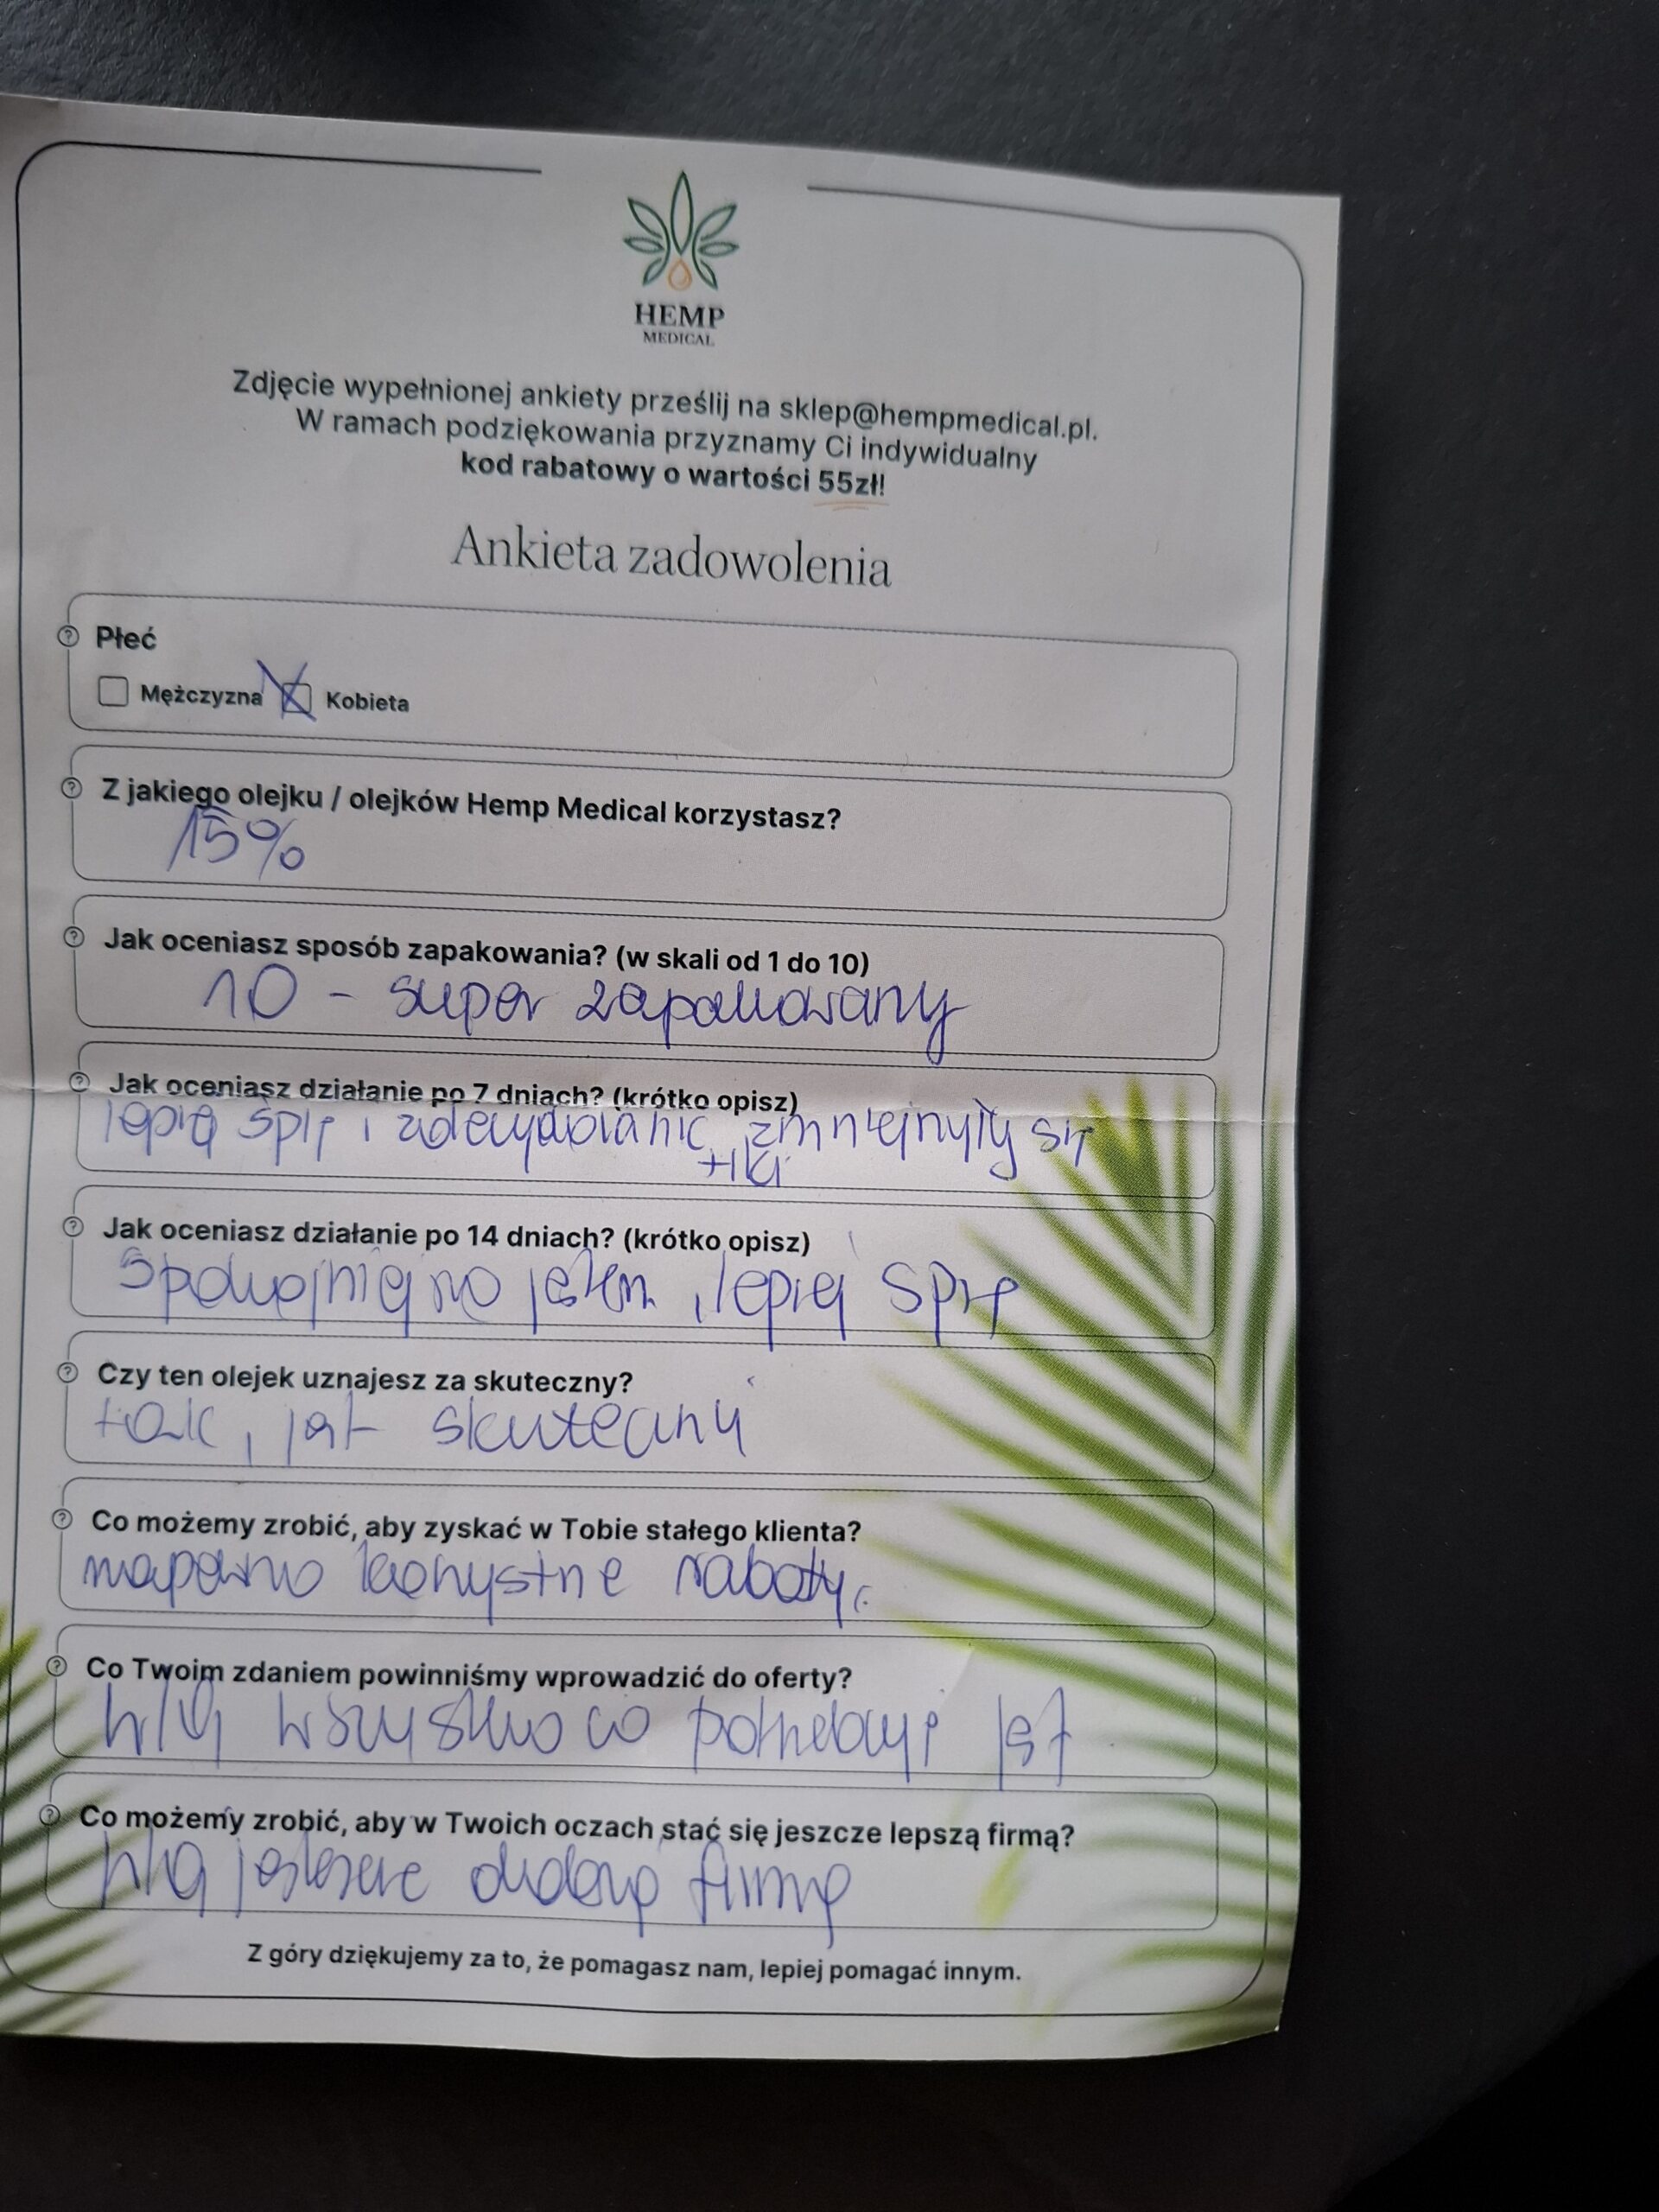 HEMP
MEDICAL
Zdjęcie wypełnionej ankiety prześlij na sklep@hempmedical.pl.
W ramach podziękowania przyznamy Ci indywidualny
kod rabatowy o wartości 55zł!
Ankieta zadowolenia
Płeć
Mężczyzna Kobieta
Z jakiego olejku / olejków Hemp Medical korzystasz?
15%
Jak oceniasz sposób zapakowania? (w skali od 1 do 10)
10 - super zapakowany
Jak oceniasz działanie po 7 dniach? (krótko opisz)
lepiej śpię i zdecydowanie zmniejszyły się
tiki
Jak oceniasz działanie po 14 dniach? (krótko opisz)
Spokojniejsza jestem, lepiej śpię
Czy ten olejek uznajesz za skuteczny?
tak, jest skuteczny
Co możemy zrobić, aby zyskać w Tobie stałego klienta?
napewno korzystne rabaty
Co Twoim zdaniem powinniśmy wprowadzić do oferty?
wszystko co potrzebuję jest
Co możemy zrobić, aby w Twoich oczach stać się jeszcze lepszą firmą?
jesteście firmą
Z góry dziękujemy za to, że pomagasz nam, lepiej pomagać innym.